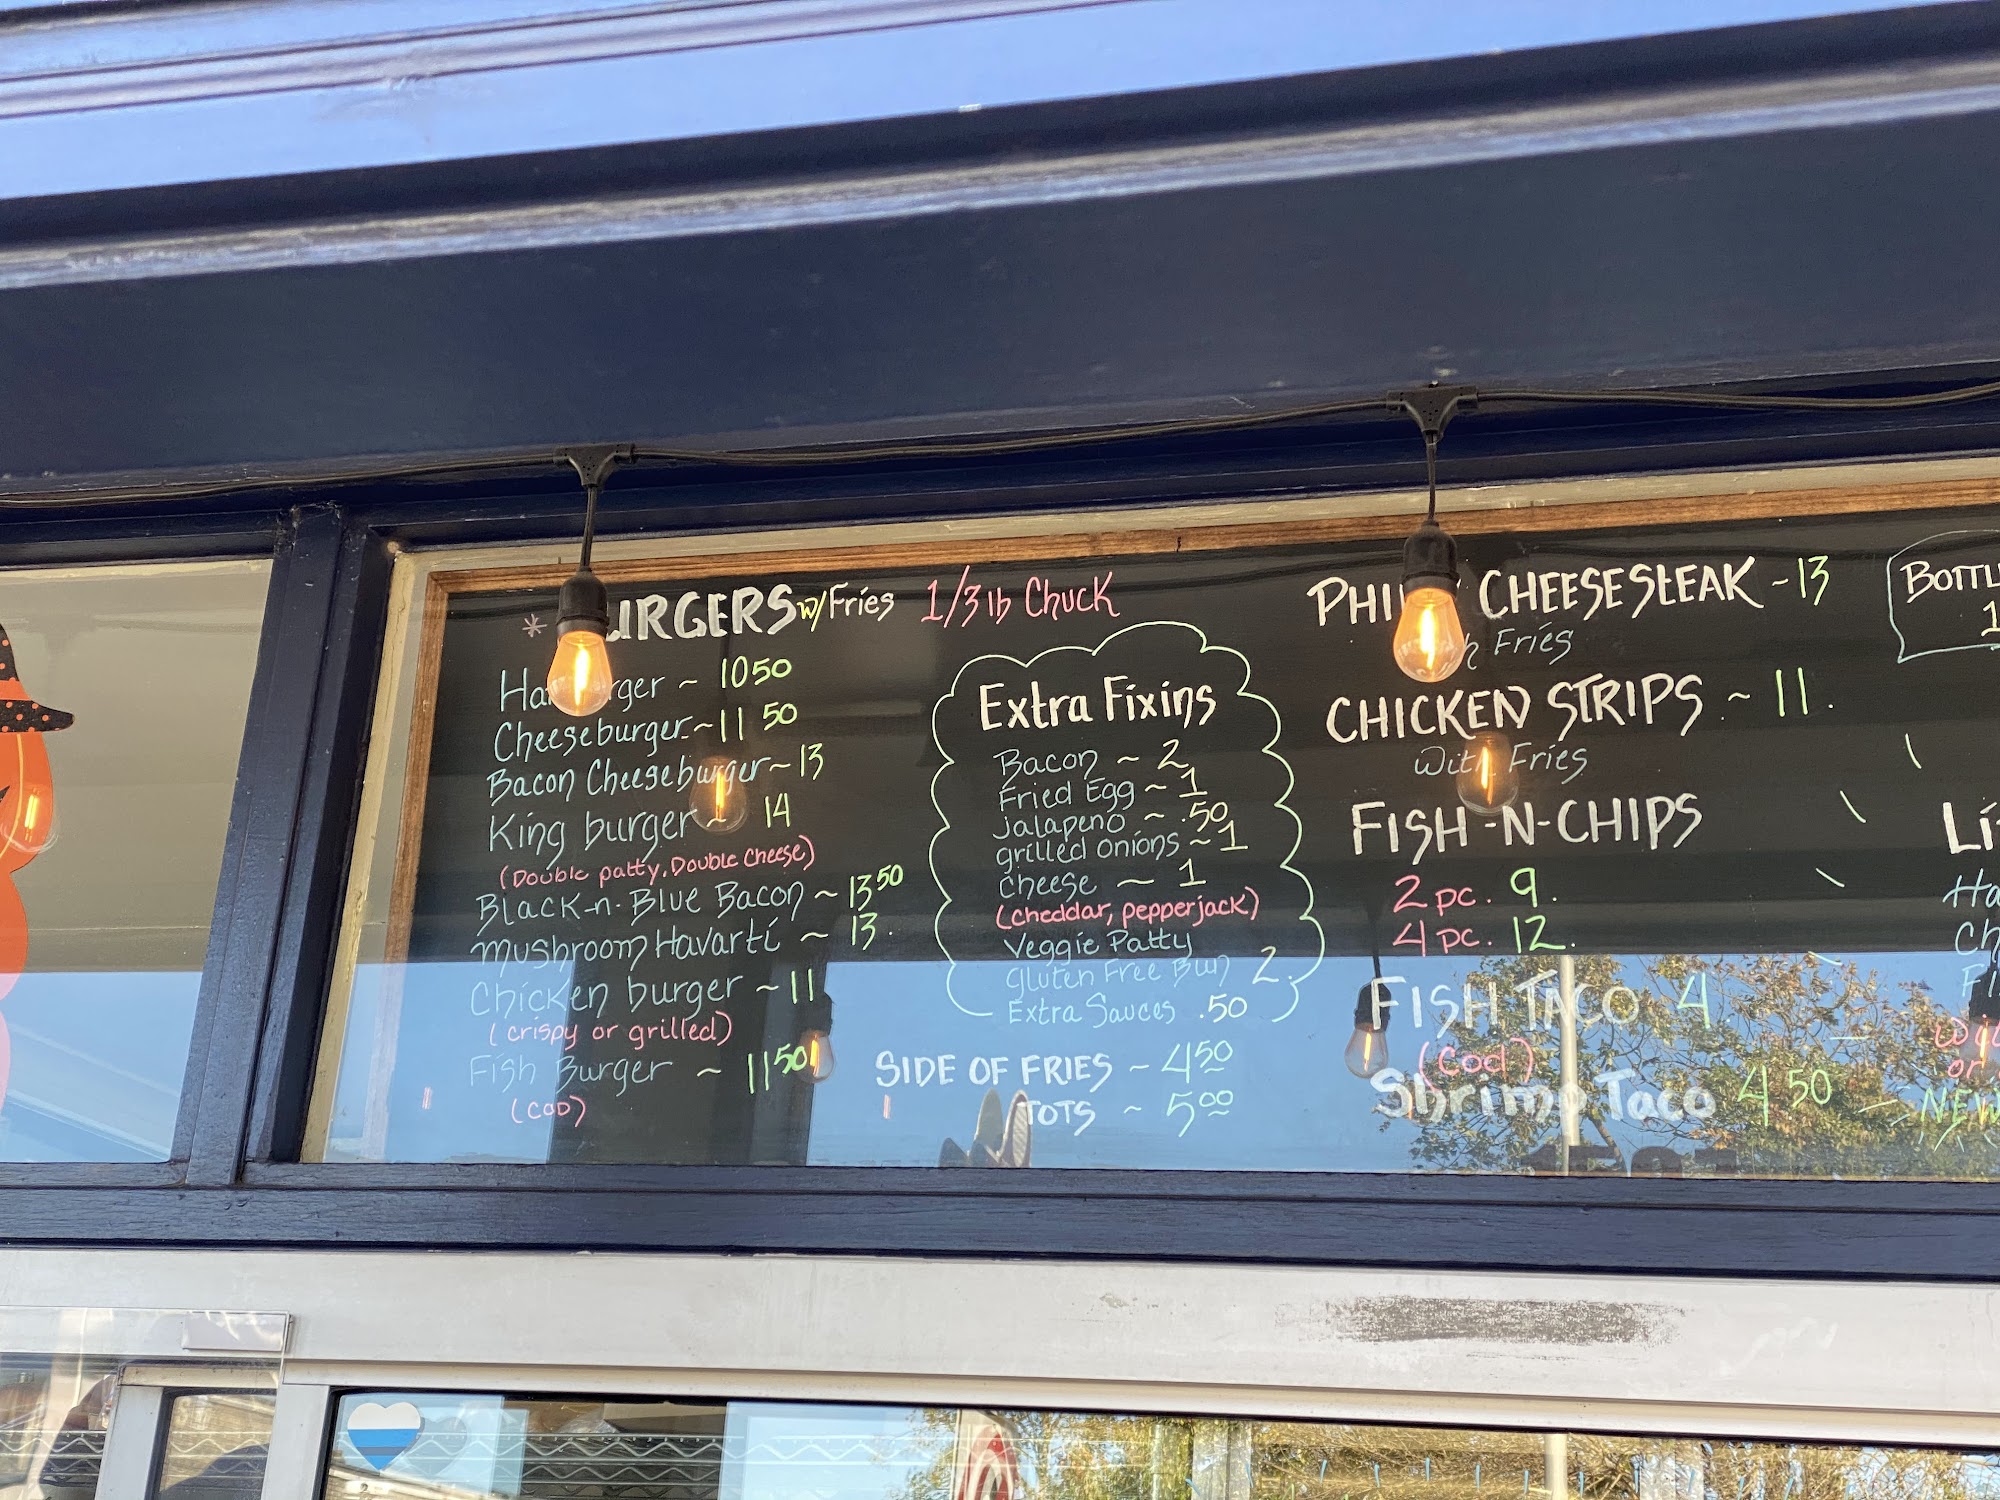 * BURGERS w/Fries 1/3 lb Chuck
Hamburger ~ 10 50
Cheeseburger ~ 11 50
Bacon Cheeseburger ~ 13
King burger ~ 14
(Double patty, Double Cheese)
Black-n-Blue Bacon ~ 13 50
Mushroom Havarti ~ 13.
Chicken burger ~ 11
(crispy or grilled)
Fish Burger ~ 11 50
(COD)
Extra Fixins
Bacon ~ 2
Fried Egg ~ 1
Jalapeno ~ .50
grilled onions ~ 1
Cheese ~ 1
(cheddar, pepperjack)
Veggie Patty
Gluten Free Bun 2.
Extra Sauces .50
SIDE OF FRIES ~ 4 50
TOTS ~ 5 00
PHILLY CHEESESTEAK ~ 13
with Fries
CHICKEN STRIPS ~ 11.
With Fries
FISH-N-CHIPS
2 pc. 9.
4 pc. 12.
FISH TACO 4
(Cod)
Shrimp Taco 4 50
NEW